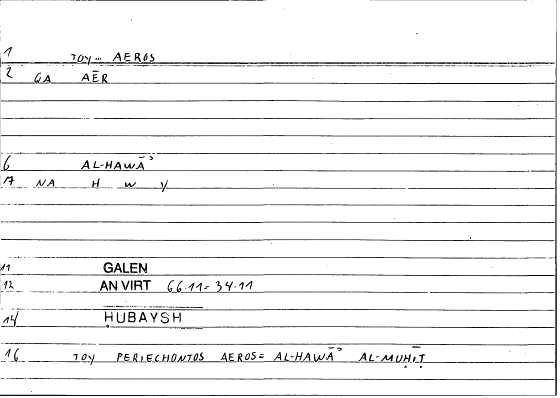 1 TOY... AEROS
2 GA AĒR
6 AL-HAWĀʾ
17 NA H w y
11 GALEN
12 AN VIRT 66.11 = 34.11
14 ḤUBAYSH
16 TOY PERIECHONTOS AEROS = AL-HAWĀʾ AL-MUḤĪṬ